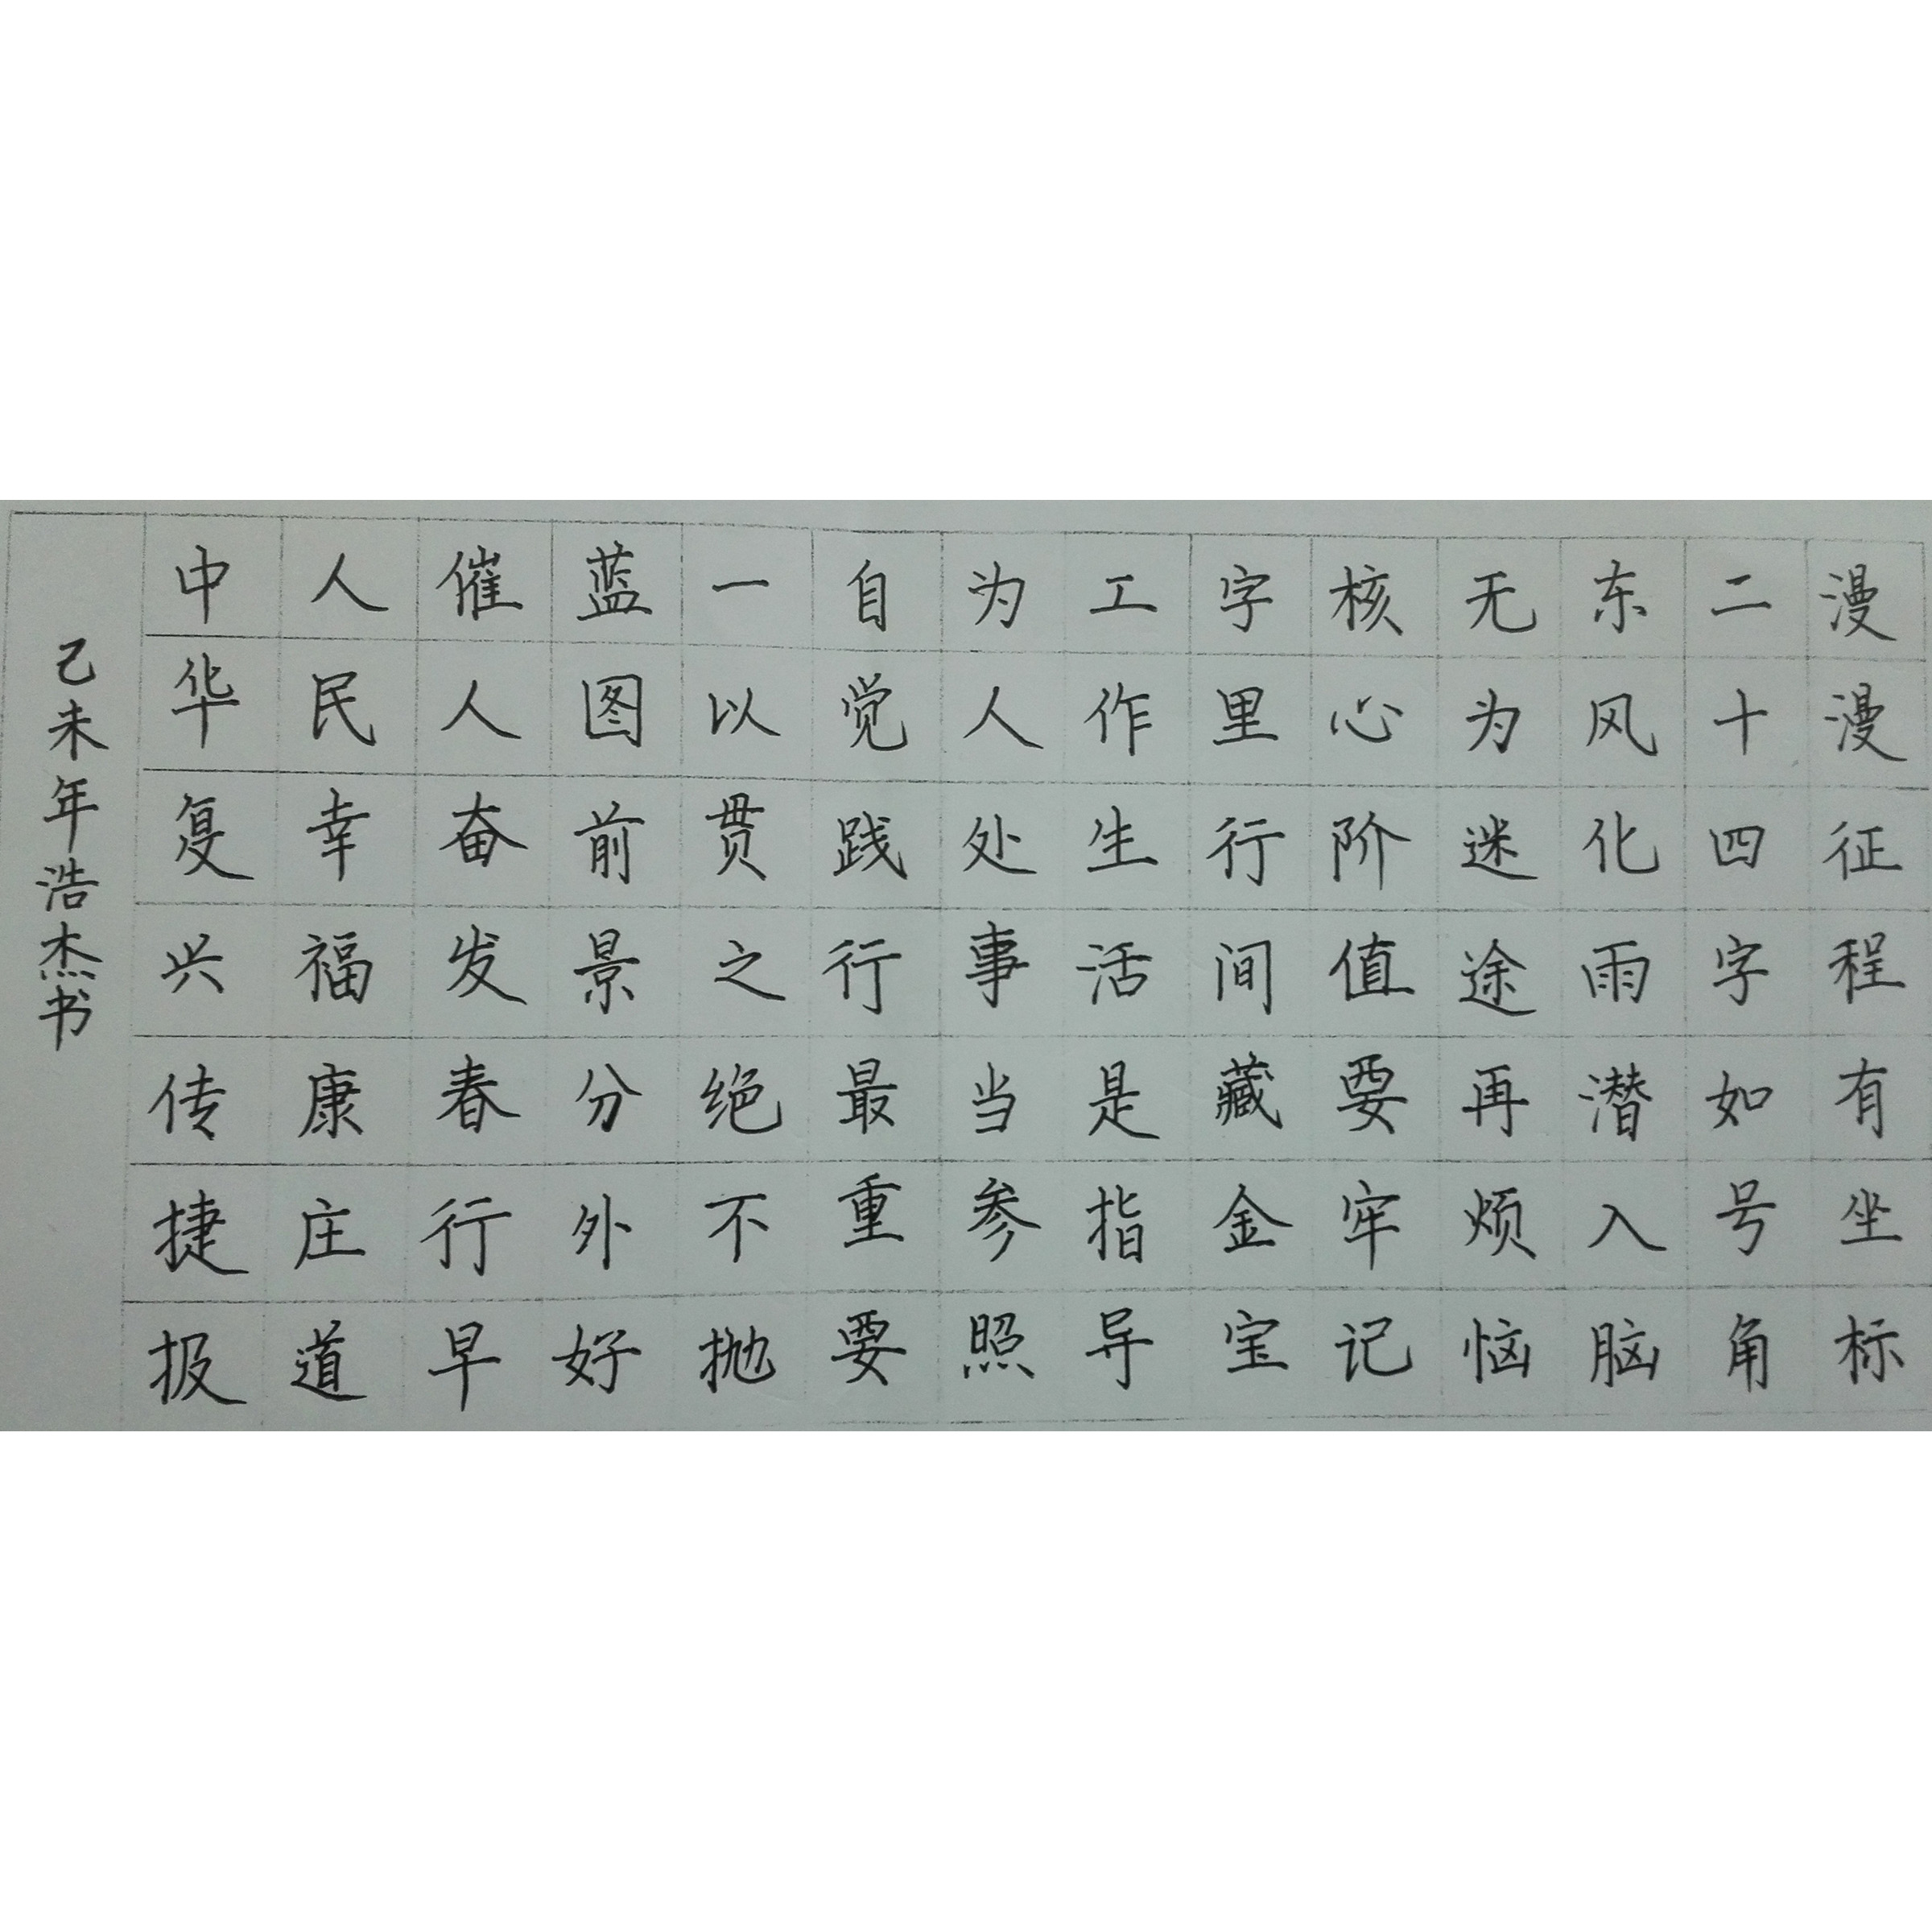 漫漫征程有坐标
二十四字如号角
东风化雨潜入脑
无为迷途再烦恼
核心阶值要牢记
字里行间藏金宝
工作生活是指导
为人处事当参照
自觉践行最重要
一以贯之绝不抛
蓝图前景分外好
催人奋发春行早
人民幸福康庄道
中华复兴传捷报
己未年浩杰书